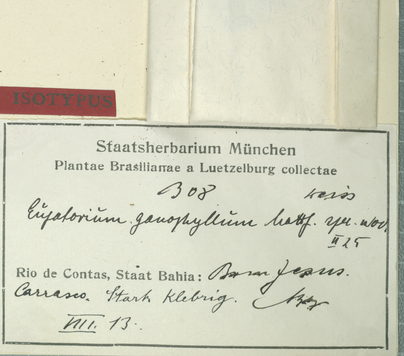 ISOTYPUS
Staatsherbarium München
Plantae Brasilianae a Luetzelburg collectae
308 weiss
Eupatorium ganophyllum Mattf. spec. nov.
II 25
Rio de Contas, Staat Bahia: Bom Jesus.
Carrasco. Stark klebrig.
VIII. 13.